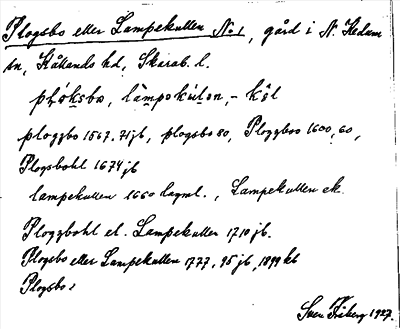 Plogsbo eller Lampekullen No 1, gård i N. Kedum
sn, Kållands hd, Skarab. l.
ploggbo 1567. 71 jb, plogsbo 80, Ploggboo 1600, 60,
Plogsbohl 1674 jb
lampekullen 1660 lagml., Lampekullen ek.
Ploggbohl el. Lampekullen 1710 jb.
Plogsbo eller Lampekullen 1777. 95 jb, 1899 kb
Plogsbo
Sven Fröberg 1927.